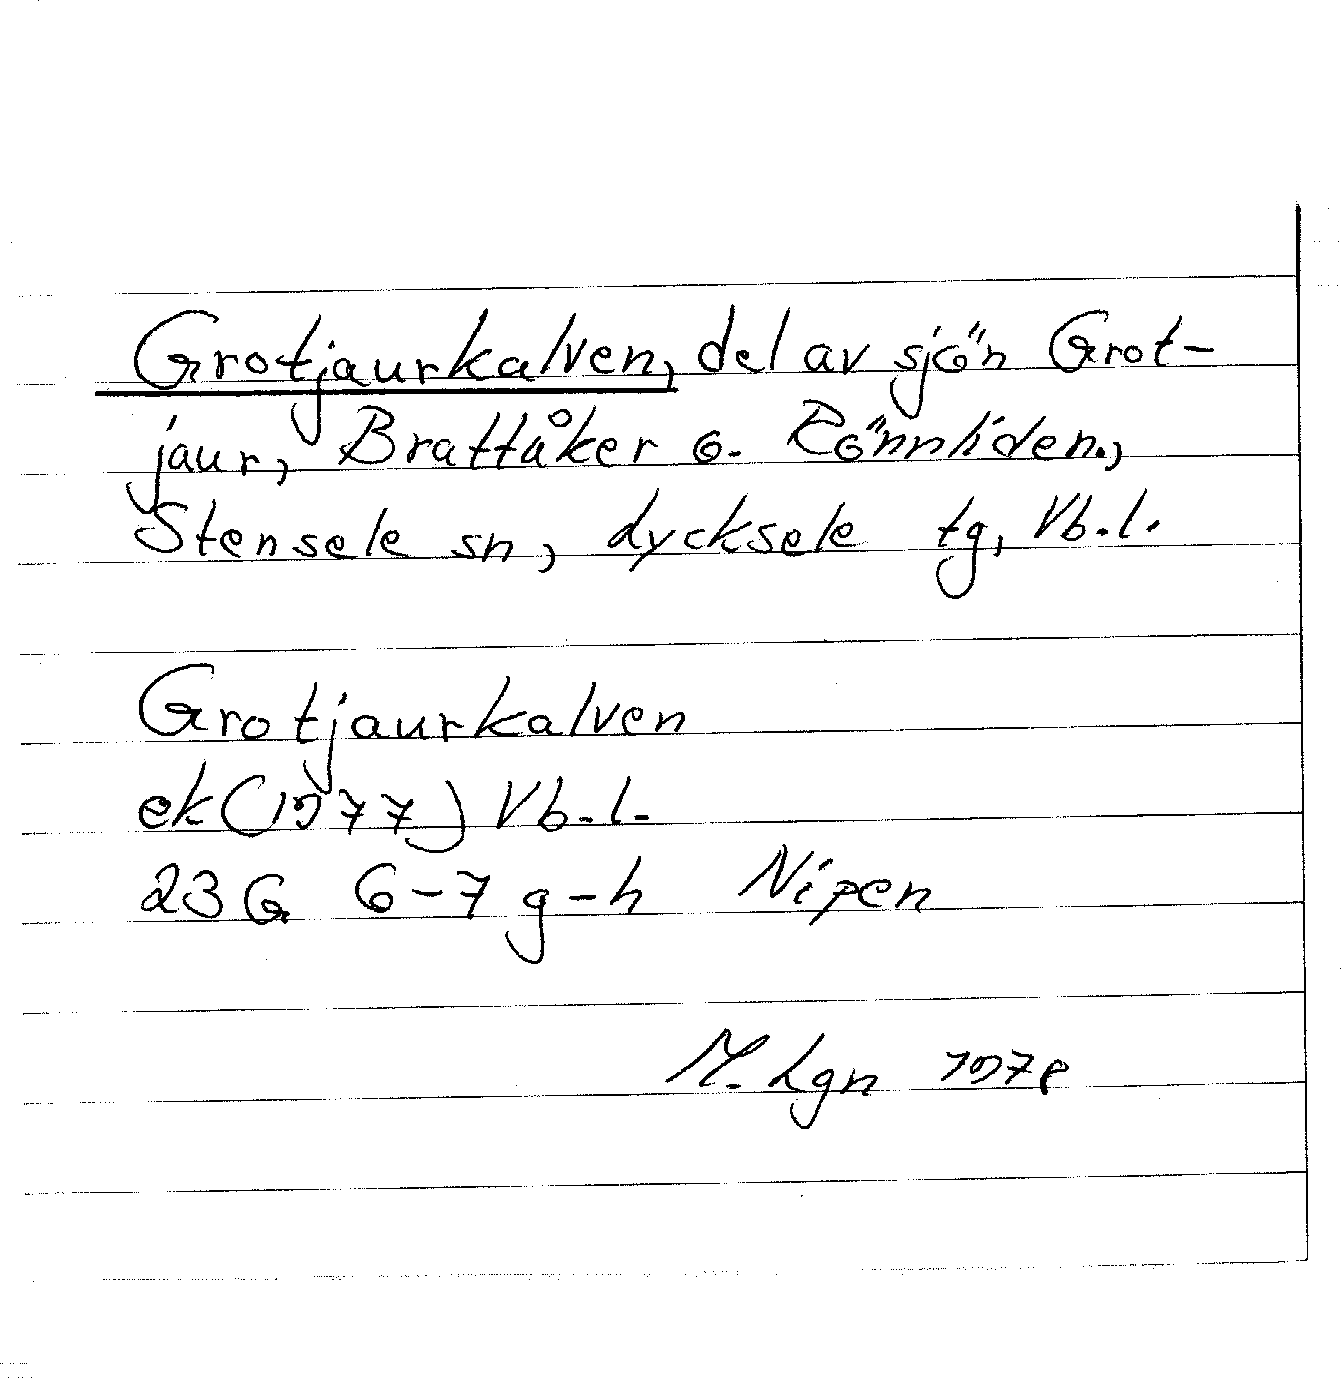 Grotjaurkalven, del av sjön Grot-
jaur, Brattåker o. Rönnliden.,
Stensele sn, lycksele tg, Vb.l.
Grotjaurkalven
ek (1977) Vb.l.
23 G 6-7 g-h Nipen
M. Lgn 1978